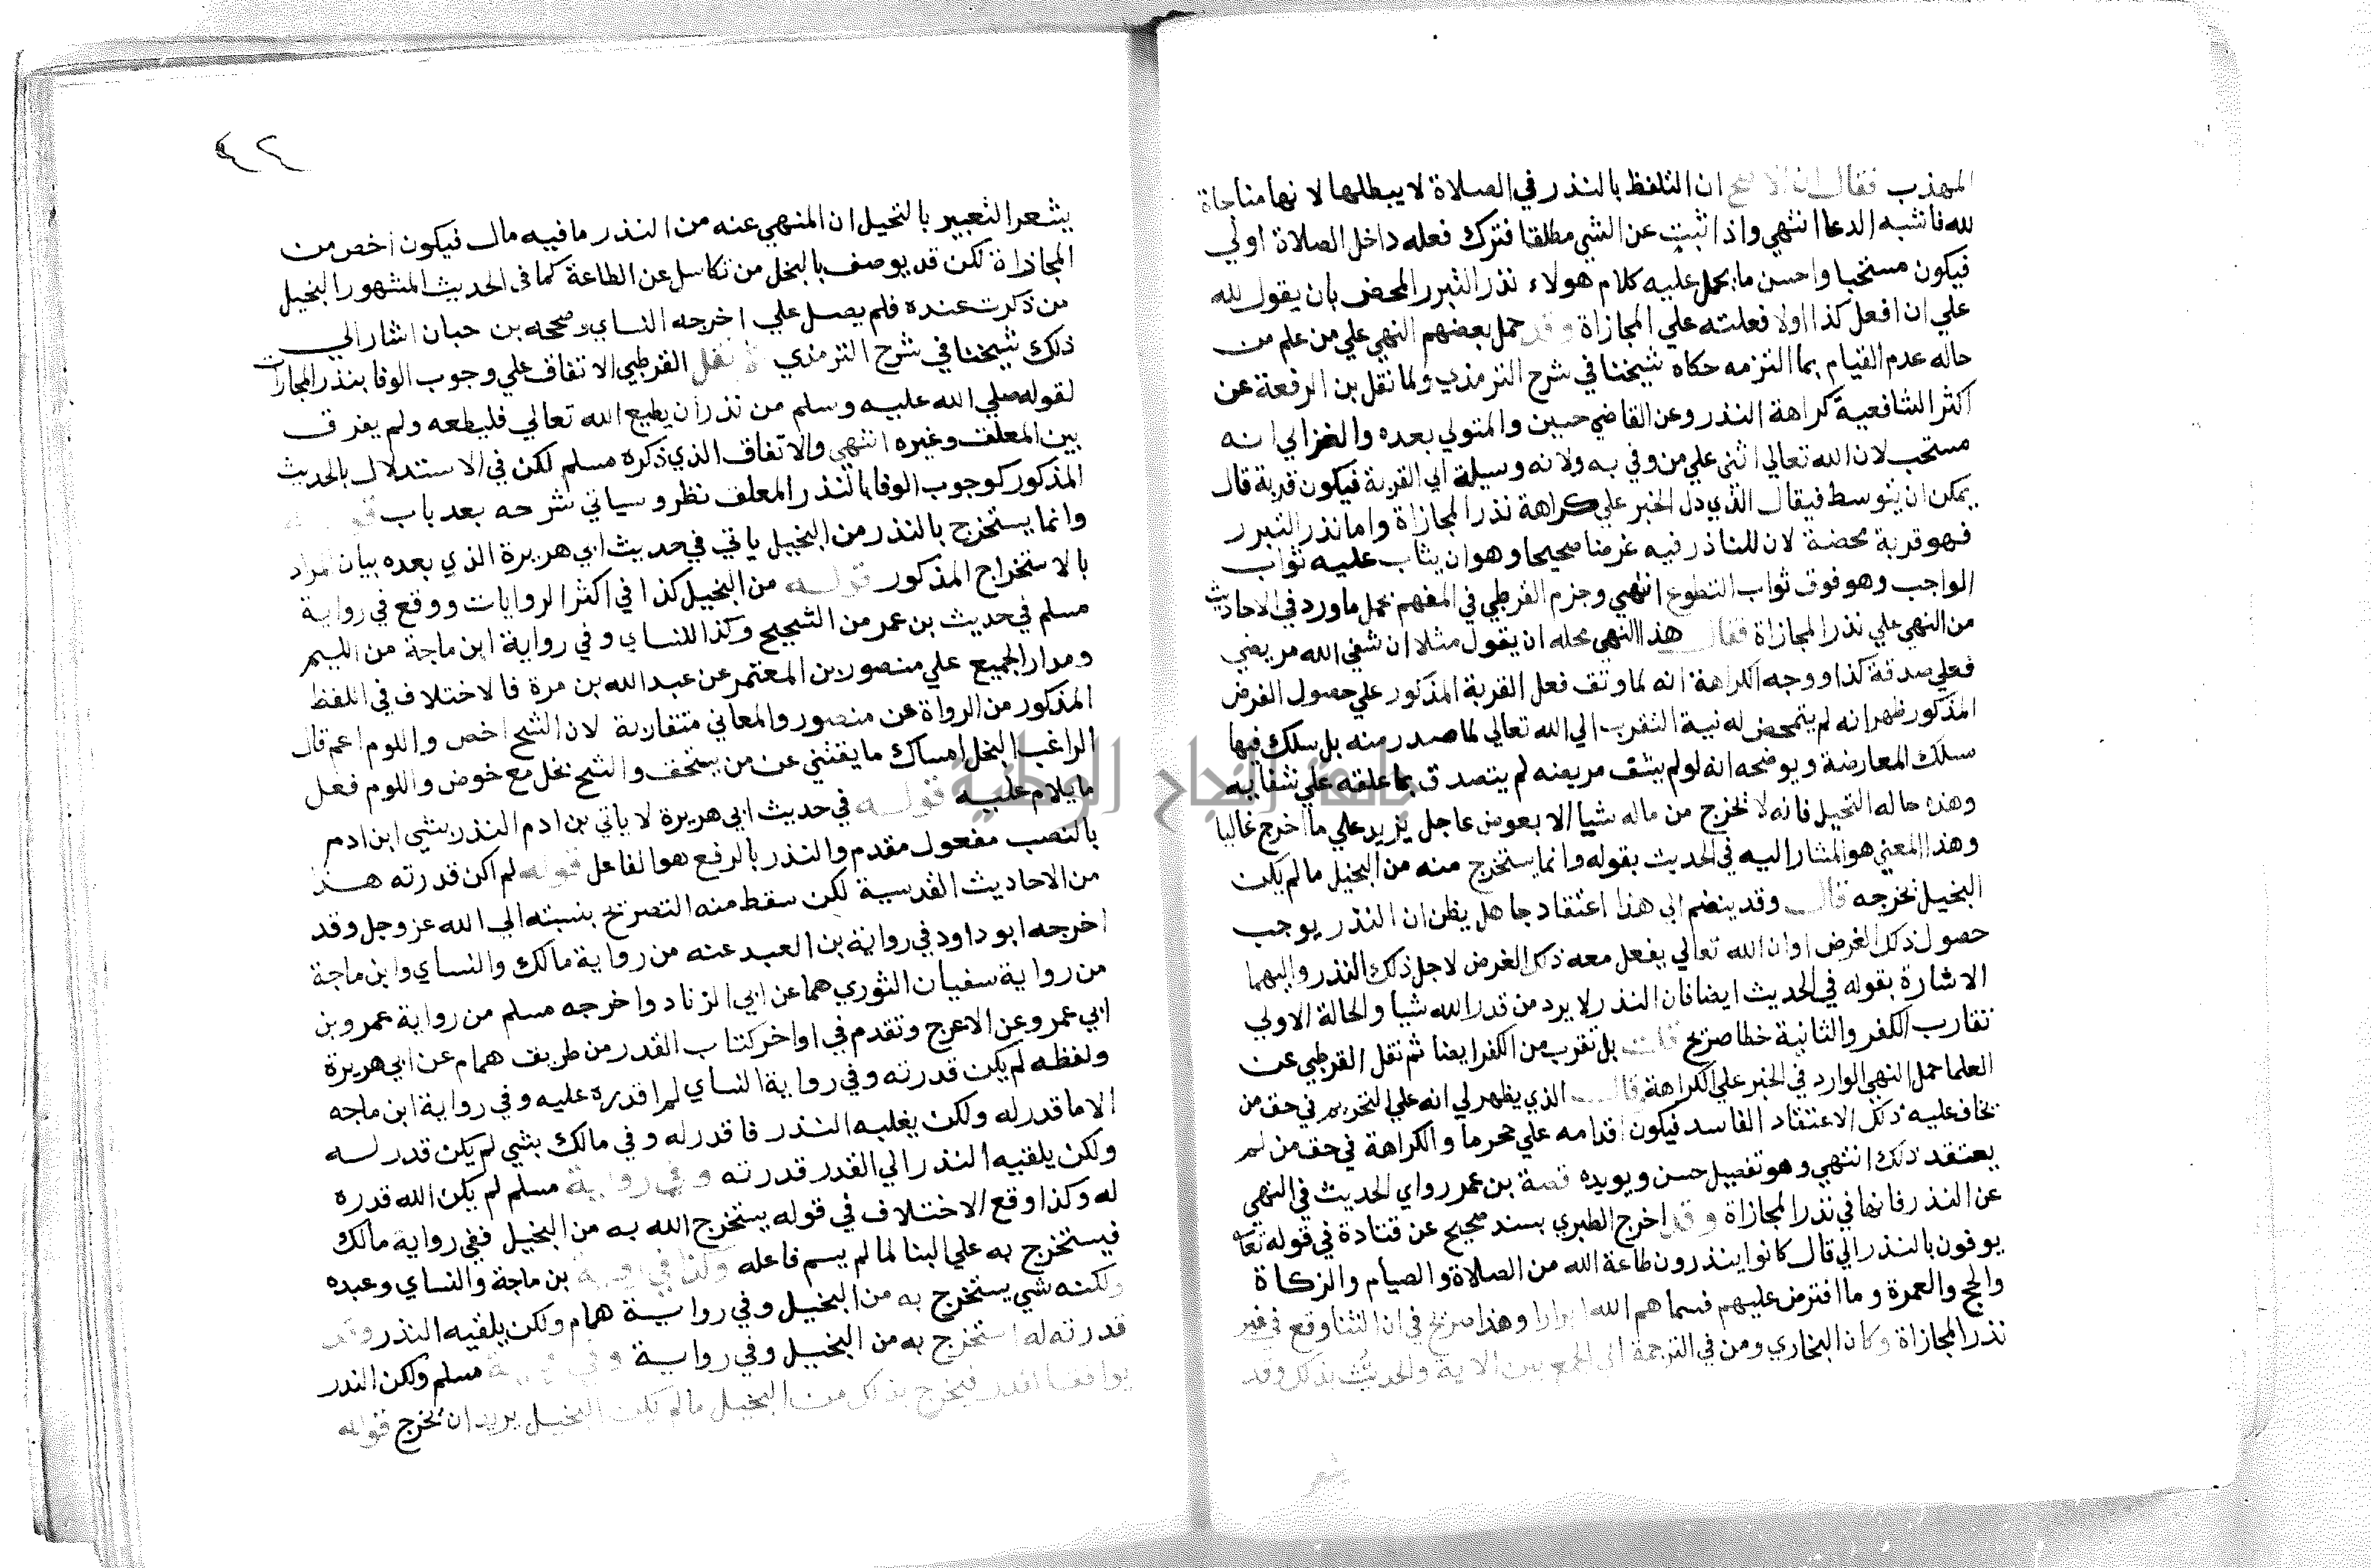 المهذب فقال ان الاصح ان التلفظ بالنذر في الصلاة لا يبطلها لانها مناجاة
لله فاشبه الدعا انتهي واذا ثبت عن الشي مطلقا فترك فعله داخل الصلاة اولي
فيكون مستحبا واحسن ما يحمل عليه كلام هولاء نذر التبرر المحض بان يقول لله
علي ان افعل كذا اولا فعلته علي المجازاة وقد حمل بعضهم النهي علي من علم من
حاله عدم القيام بما التزمه حكاه شيخنا في شرح الترمذي ولما نقل بن الرفعة عن
اكثر الشافعية كراهة النذر وعن القاضي حسين والمتولي بعده والغزالي انه
مستحب لان الله تعالي اثني علي من وفي به ولانه وسيلة الي القربة فيكون قربة قال
يمكن ان يتوسط فيقال الذي دل الخبر علي كراهة نذر المجازاة واما نذر التبرر
فهو قربة محضة لان للناذر فيه غرضا صحيحا وهو ان يثاب عليه ثواب
الواجب وهو فوق ثواب التطوع انتهي وجزم القرطبي في المفهم بحمل ما ورد في الاحاديث
من النهي علي نذر المجازاة فقال هذا النهي محله ان يقول مثلا ان شفي الله مريضي
فعلي صدقة كذا ووجه الكراهة انه لما وقف فعل القربة المذكور علي حصول الغرض
المذكور ظهر انه لم يتمحض له نية التقرب الي الله تعالي لما صدر منه بل سلك فيها
سلك المعارضة ويوضحه انه لو لم يشف مريضه لم يتصدق بما علقه علي شفايه
وهذه حاله البخيل فانه لا يخرج من ماله شيا الا بعوض عاجل يزيد علي ما اخرج غالبا
وهذا المعني هو المشار اليه في الحديث بقوله وانما يستخرج منه من البخيل ما لم يكن
البخيل يخرجه قال وقد ينضم الي هذا اعتقاد جاهل يظن ان النذر يوجب
حصول ذلك الغرض او ان الله تعالي يفعل معه ذلك الغرض لاجل ذلك النذر واليهما
الاشارة بقوله في الحديث ايضا فان النذر لا يرد من قدر الله شيا والحالة الاولي
تقارب الكفر والثانية خطا صريح قلت بل تقرب من الكفر ايضا ثم نقل القرطبي عن
العلما حمل النهي الوارد في الخبر علي الكراهة قال الذي يظهر لي انه علي التحريم في حق من
يخاف عليه ذلك الاعتقاد الفاسد فيكون اقدامه علي محرما والكراهة في حق من لم
يعتقد ذلك انتهي وهو تفصيل حسن ويويده قصة بن عمر راوي الحديث في النهي
عن النذر فانها في نذر المجازاة وقد اخرج الطبري بسند صحيح عن قتادة في قوله تعا
يوفون بالنذر الي قال كانوا ينذرون طاعة الله من الصلاة والصيام والزكاة
والحج والعمرة وما افترض عليهم فسماهم الله ابرارا وهذا صريح في ان الثنا وقع في غير
نذر المجازاة وكان البخاري ومن في الترجمة الي الجمع بين الاية والحديث بذلك وقد
يشعر
٤٢
يشعر التعبير بالتخيل ان المنهي عنه من النذر ما فيه مال فيكون اخص من
المجازاة لكن قد يوصف بالبخل من تكاسل عن الطاعة كما في الحديث المشهور البخيل
من ذكرت عنده فلم يصل علي اخرجه النساي وصححه بن حبان اشار الي
ذلك شيخنا في شرح الترمذي ثم نقل القرطبي الاتفاق علي وجوب الوفا بنذر المجازات
لقوله صلي الله عليه وسلم من نذر ان يطيع الله تعالي فليطعه ولم يفرق
بين المعلق وغيره انتهي والاتفاق الذي ذكره مسلم لكن في الاستدلال بالحديث
المذكور كوجوب الوفا بالنذر المعلق نظر وسياتي شرحه بعد باب قوله
وانما يستخرج بالنذر من البخيل ياتي في حديث ابي هريرة الذي بعده بيان المراد
بالاستخراج المذكور قوله من البخيل كذا في اكثر الروايات ووقع في رواية
مسلم في حديث بن عمر من الشحيح وكذا للنساي وفي رواية ابن ماجة من الليم
ومدار الجميع علي منصور بن المعتمر عن عبد الله بن مرة فالاختلاف في اللفظ
المذكور من الرواة عن منصور والمعاني متقاربة لان الشح اخص واللوم اعم قال
الراغب البخل امساك ما يقتني عن من يستحق والشح بخل مع خوض واللوم فعل
ما يلام عليه قوله في حديث ابي هريرة لا ياتي بن ادم النذر بشي ابن ادم
بالنصب مفعول مقدم والنذر بالرفع هو الفاعل قوله لم اكن قدرته هذا
من الاحاديث القدسية لكن سقط منه التصريح بنسبته الي الله عز وجل وقد
اخرجه ابو داود في رواية بن العبد عنه من رواية مالك والنساي وابن ماجة
من رواية سفيان الثوري هما عن ابي الزناد واخرجه مسلم من رواية عمرو بن
ابي عمرو عن الاعرج وتقدم في اواخر كتاب القدر من طريق همام عن ابي هريرة
ولفظه لم يكن قدرته وفي رواية النساي لم اقدره عليه وفي رواية ابن ماجه
الا ما قدر له ولكن يغلبه النذر فاقدر له وفي مالك بشي لم يكن قدر له
ولكن يلقيه النذر الي القدر قدرته وفي رواية مسلم لم يكن الله قدره
له وكذا وقع الاختلاف في قوله يستخرج الله به من البخيل ففي رواية مالك
فيستخرج به علي البنا لما لم يسم فاعله وكذا في رواية بن ماجة والنساي وعبده
ولكنه شي يستخرج به من البخيل وفي رواية همام ولكن يلقيه النذر وقد
قدرته له استخرج به من البخيل وفي رواية وفي مسلم ولكن النذر
يوافق القدر فيخرج بذلك من البخيل ما لم يكن البخيل يريد ان يخرج قوله
جامعة النجاح الوطنية